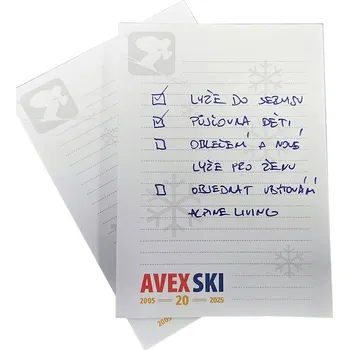 LYŽE DO SERVISU
PŮJČOVNA DĚTI
OBLEČENÍ A NOVÉ
LYŽE PRO ŽENU
OBJEDNAT UBYTOVÁNÍ
ALPINE LIVING
AVEX SKI
2005 20 2025
2005